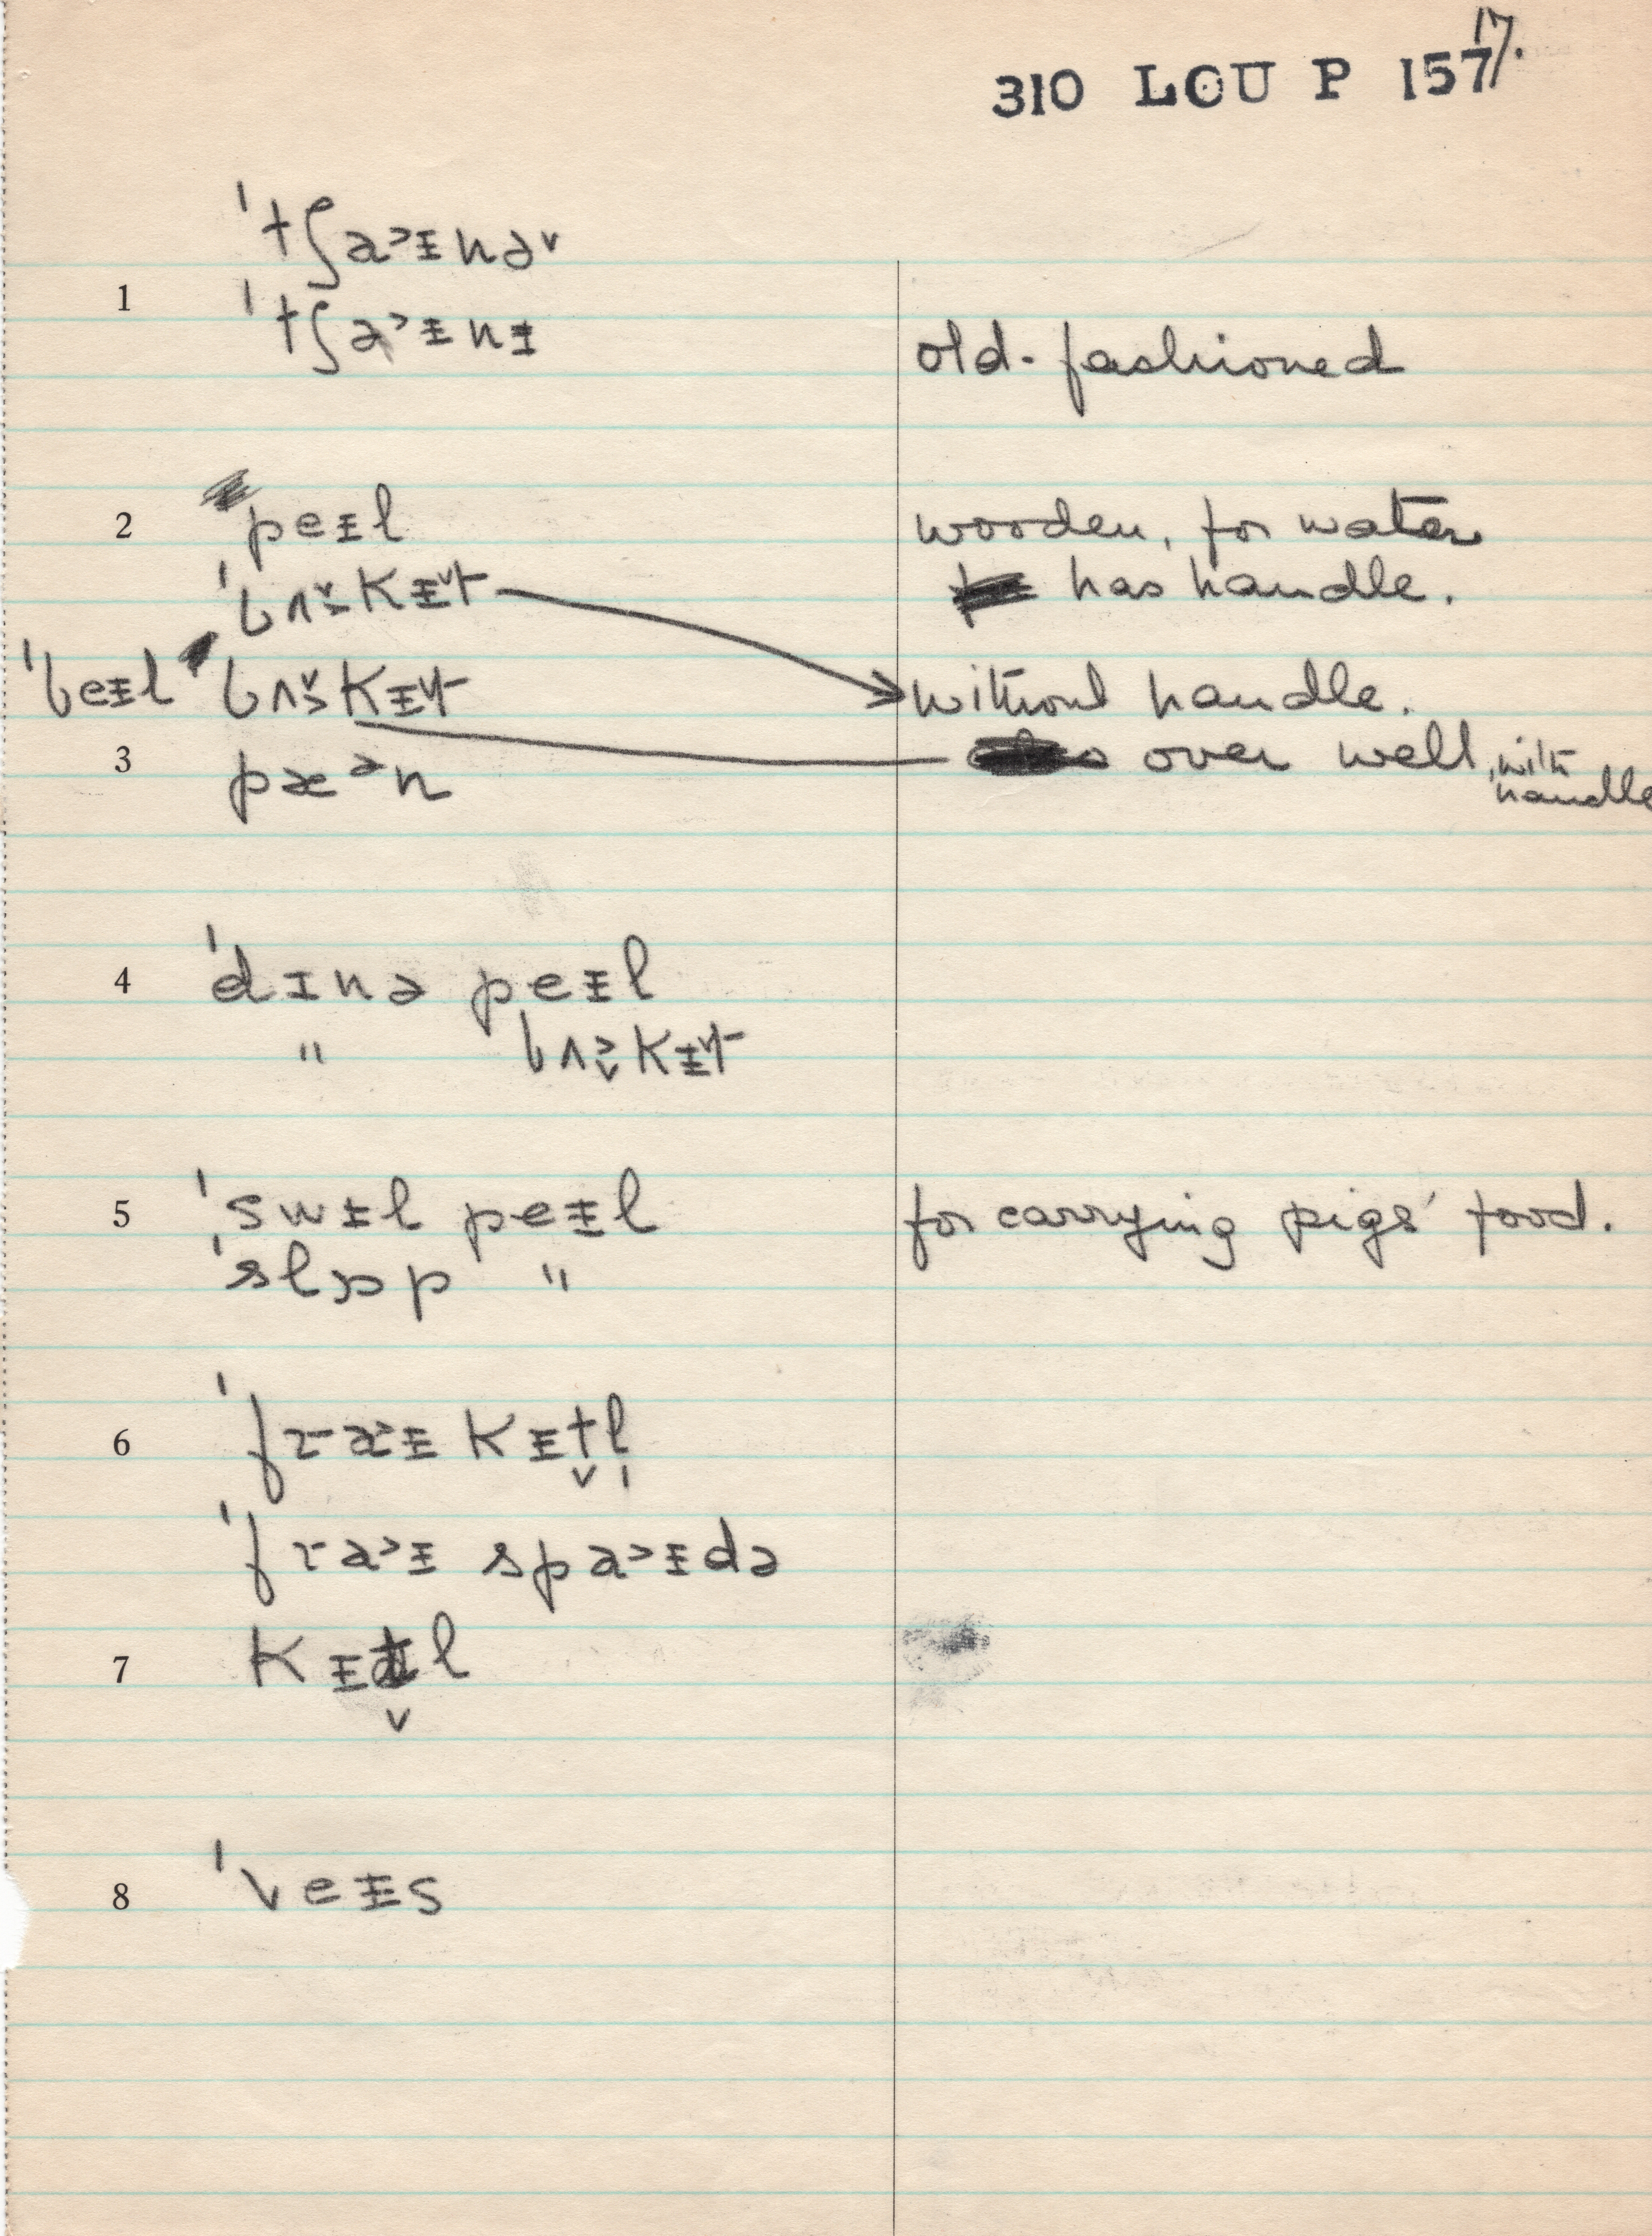 17.
310 LOU P 157
ˈtʃa˃ɪ̵nə˅
1
ˈtʃa˃ɪ̵nɪ̵
old-fashioned
2 peɪ̵l wooden, for water
ˈbʌ̬s̬kɪ̵t̬ has handle.
ˈbeɪ̵l bʌ̬skɪ̵t̬ without handle.
3 pæᵊn over well, with handle
4 ˈdɪnə peɪ̵l
" bʌ̬kɪ̵t̬
5 ˈswɪ̵l peɪ̵l for carrying pigs' food.
ˈslɒp "
6 ˈfra˃ɪ̵ kɪ̵t̬l̩
ˈfra˃ɪ̵ spa˃ɪ̵də
7 kɪ̵t̬l
8 ˈveɪ̵s